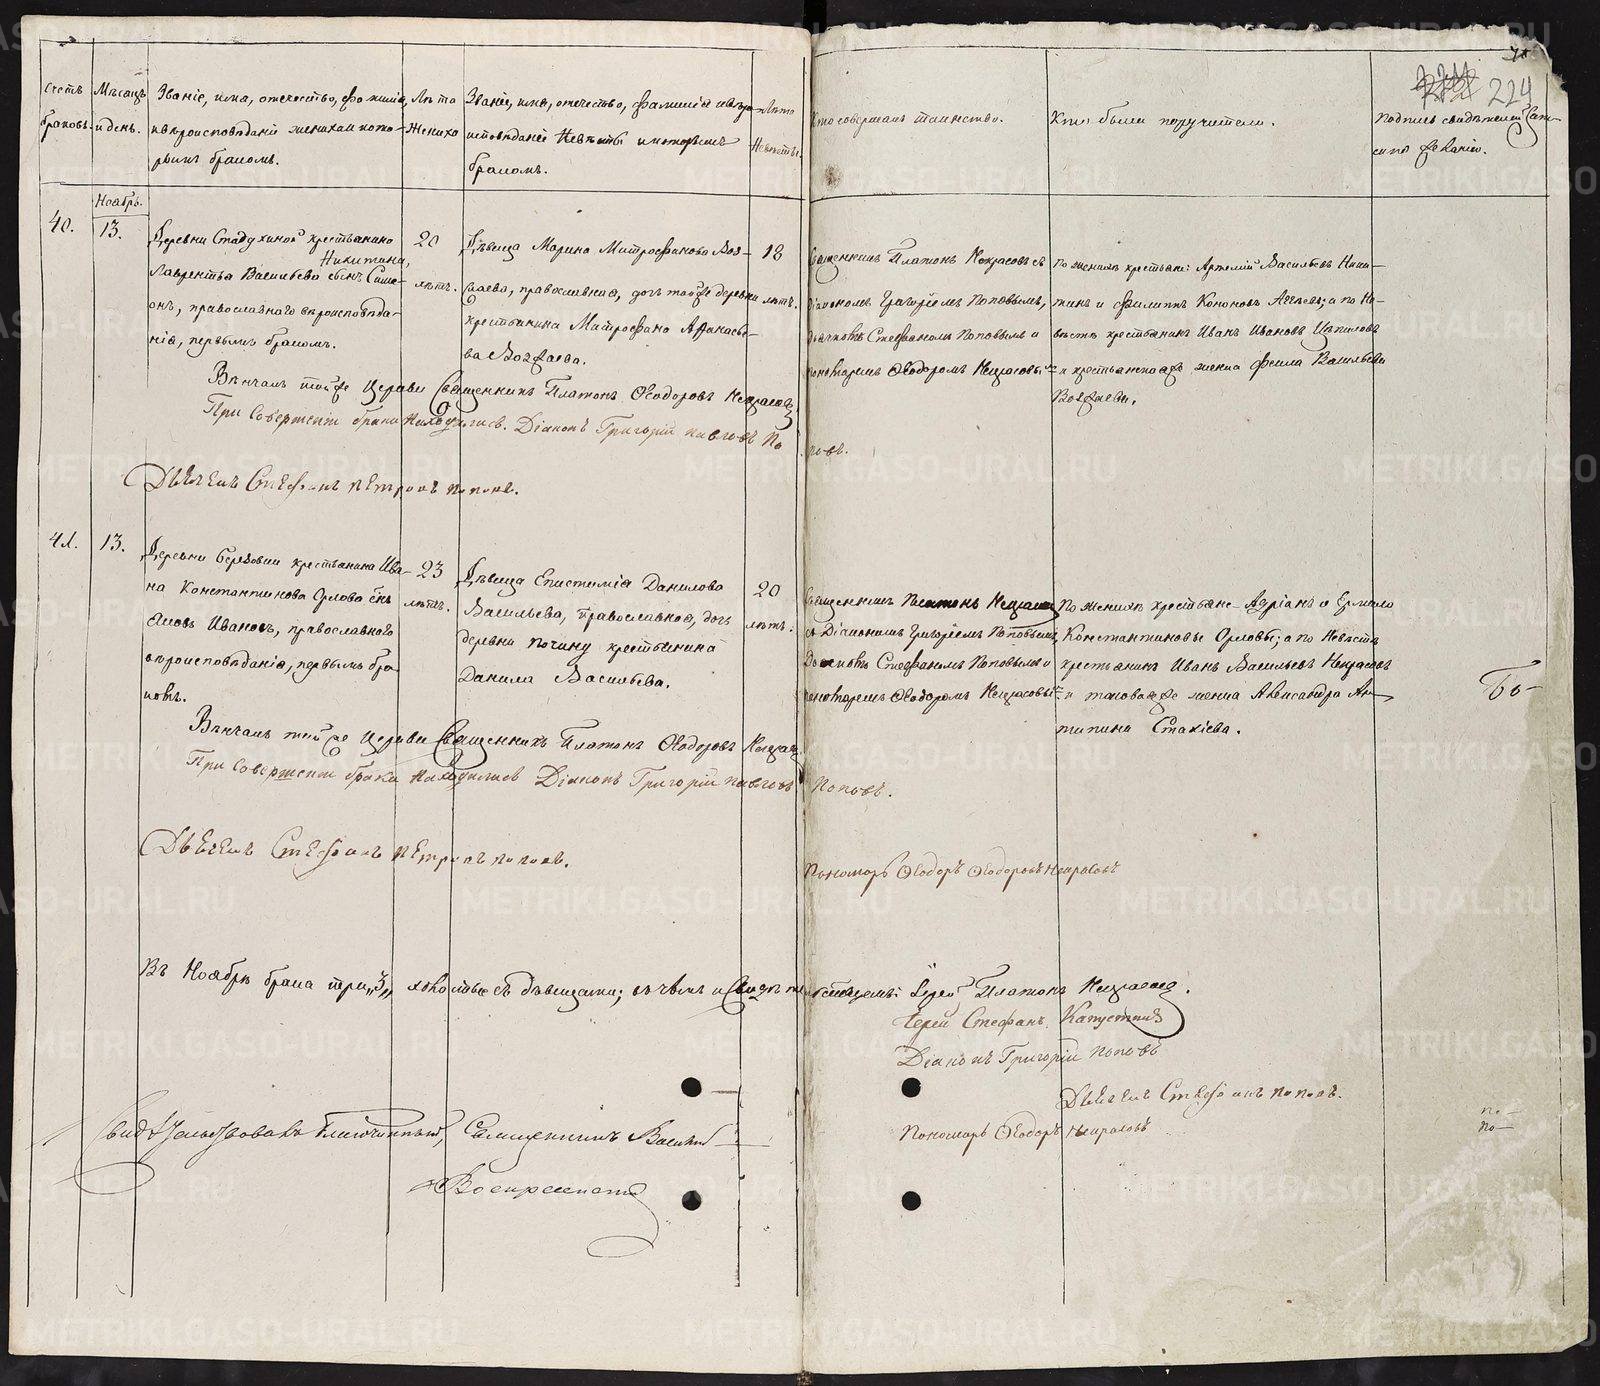 Счетъ браковъ.
Мѣсяцъ и день.
Званіе, имя, отечество, фамилія,
и вѣроисповѣданіе жениха и кото-
рымъ бракомъ.
Лѣта
жениха
Званіе, имя, отечество, фамилія и вѣро-
исповѣданіе невѣсты и которымъ
бракомъ.
Лѣта
невѣсты.
Кто совершалъ таинство.
Кто были поручители.
224
Подпись свидѣтелей
Ноябрь.
40.
13.
Деревни Стадухиной крестьянина
Никитина,
Лаврентья Васильева сынъ Симе-
онъ, православнаго вѣроисповѣда-
нія, первымъ бракомъ.
20
лѣтъ.
Дѣвица Марина Митрофанова Воз-
саева, православная, дочь тойже деревни
крестьянина Митрофана Афанасье-
ва
18
лѣтъ.
Священникъ Платонъ Некрасовъ съ
діакономъ Григоріемъ Поповымъ,
дьячкомъ Стефаномъ Поповымъ и
пономаремъ Ѳеодоромъ Некрасовымъ
По женихѣ крестьяне: Артемій Васильевъ Ники-
тинъ и Филиппъ Кононовъ а по не-
вѣстѣ крестьянинъ Иванъ Ивановъ
и крестьянская жена Васильева
Вѣнчалъ тойже Церкви Священникъ Платонъ Ѳеодоровъ Некрасовъ
При Совершеніи брака Находились. Діаконъ Григорій Павловъ По
повъ.
Дьячекъ Стефанъ Петровъ Поповъ.
41.
13.
Деревни крестьянина Ива-
на Константинова Орлова сынъ
Ивановъ, православнаго
вѣроисповѣданія, первымъ бра-
комъ.
23
лѣтъ.
Дѣвица Епистимія Данилова
Васильева, православная, дочь
деревни Почину крестьянина
Данила Васильева.
20
лѣтъ.
Священникъ Платонъ Некрасовъ
съ Діакономъ Григоріемъ Поповымъ,
Дьячкомъ Стефаномъ Поповымъ и
пономаремъ Ѳеодоромъ Некрасовымъ
По женихѣ крестьяне Адріанъ и Ермило
Константиновы Орловы; а по невѣстѣ
крестьянинъ Иванъ Васильевъ Некрасовъ
и таковаяже жена Александра Ан-
типина Стахіева.
Вѣнчалъ тойже Церкви Священникъ Платонъ Ѳеодоровъ Некрасовъ
При Совершеніи брака Находились Діаконъ Григорій Павловъ
Поповъ.
Дьячекъ Стефанъ Петровъ Поповъ.
Пономарь Ѳеодоръ Ѳеодоровъ Некрасовъ
Въ Ноябрѣ брака три „3„ холостые съ дѣвицами; въ чемъ и Свидѣтельствуемъ: Іерей Платонъ Некрасовъ.
Іерей Стефанъ Капустинъ
Діаконъ Григорій Поповъ
Дьячекъ Стефанъ Поповъ.
Пономарь Ѳеодоръ Некрасовъ
Свидѣтельствовалъ Благочинный, Священникъ Василій
Воскресенскій
METRIKI.GASO-URAL.RU